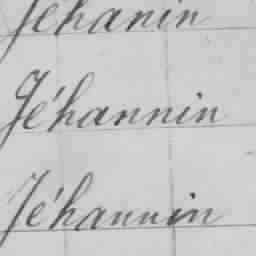 Jéhanin
Jéhannin
Jéhannin